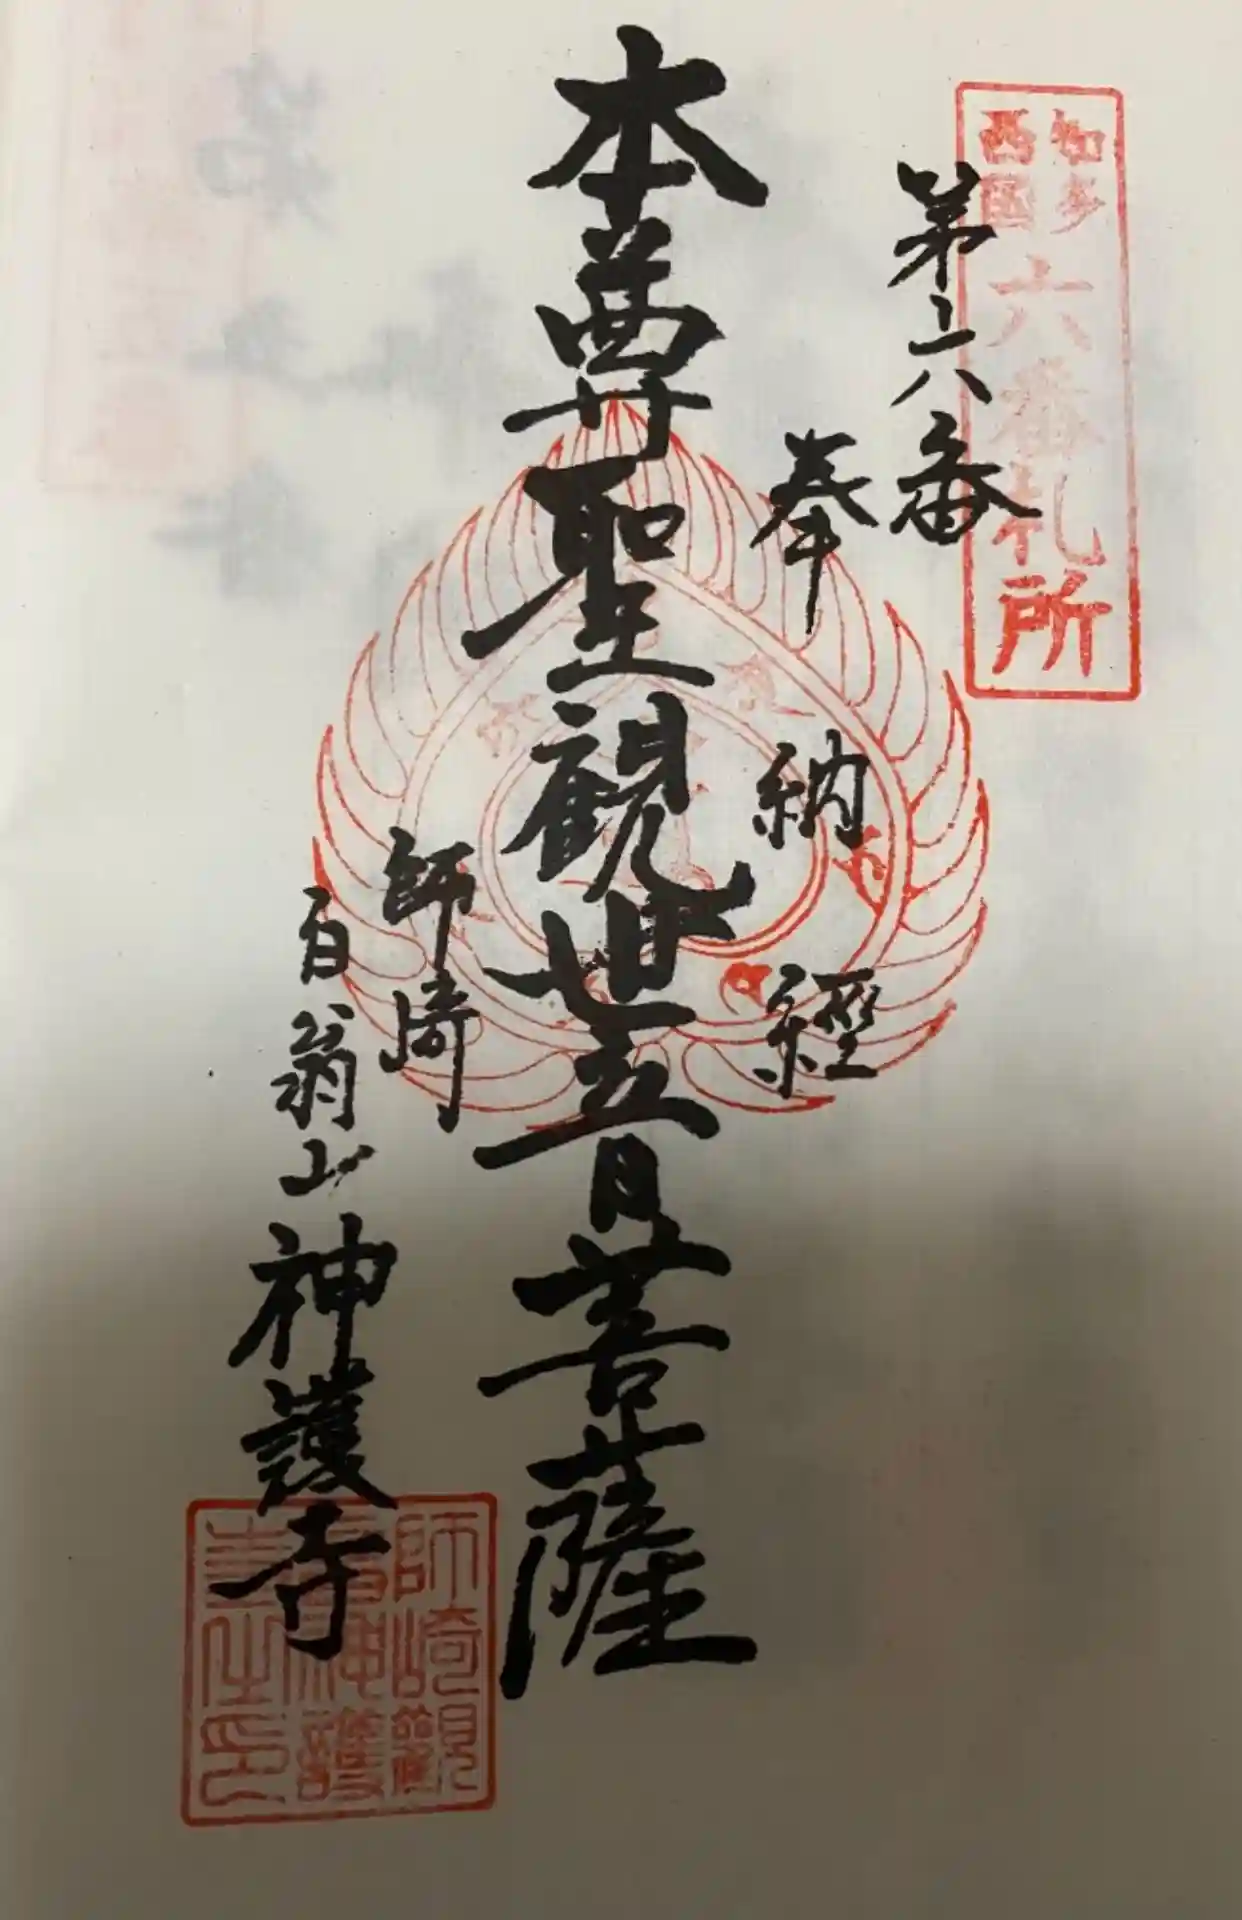 知多
西国
六番札所
第六番
奉納経
本尊聖観世音菩薩
師崎
白翁山神護寺
師崎観
音神護
寺之印